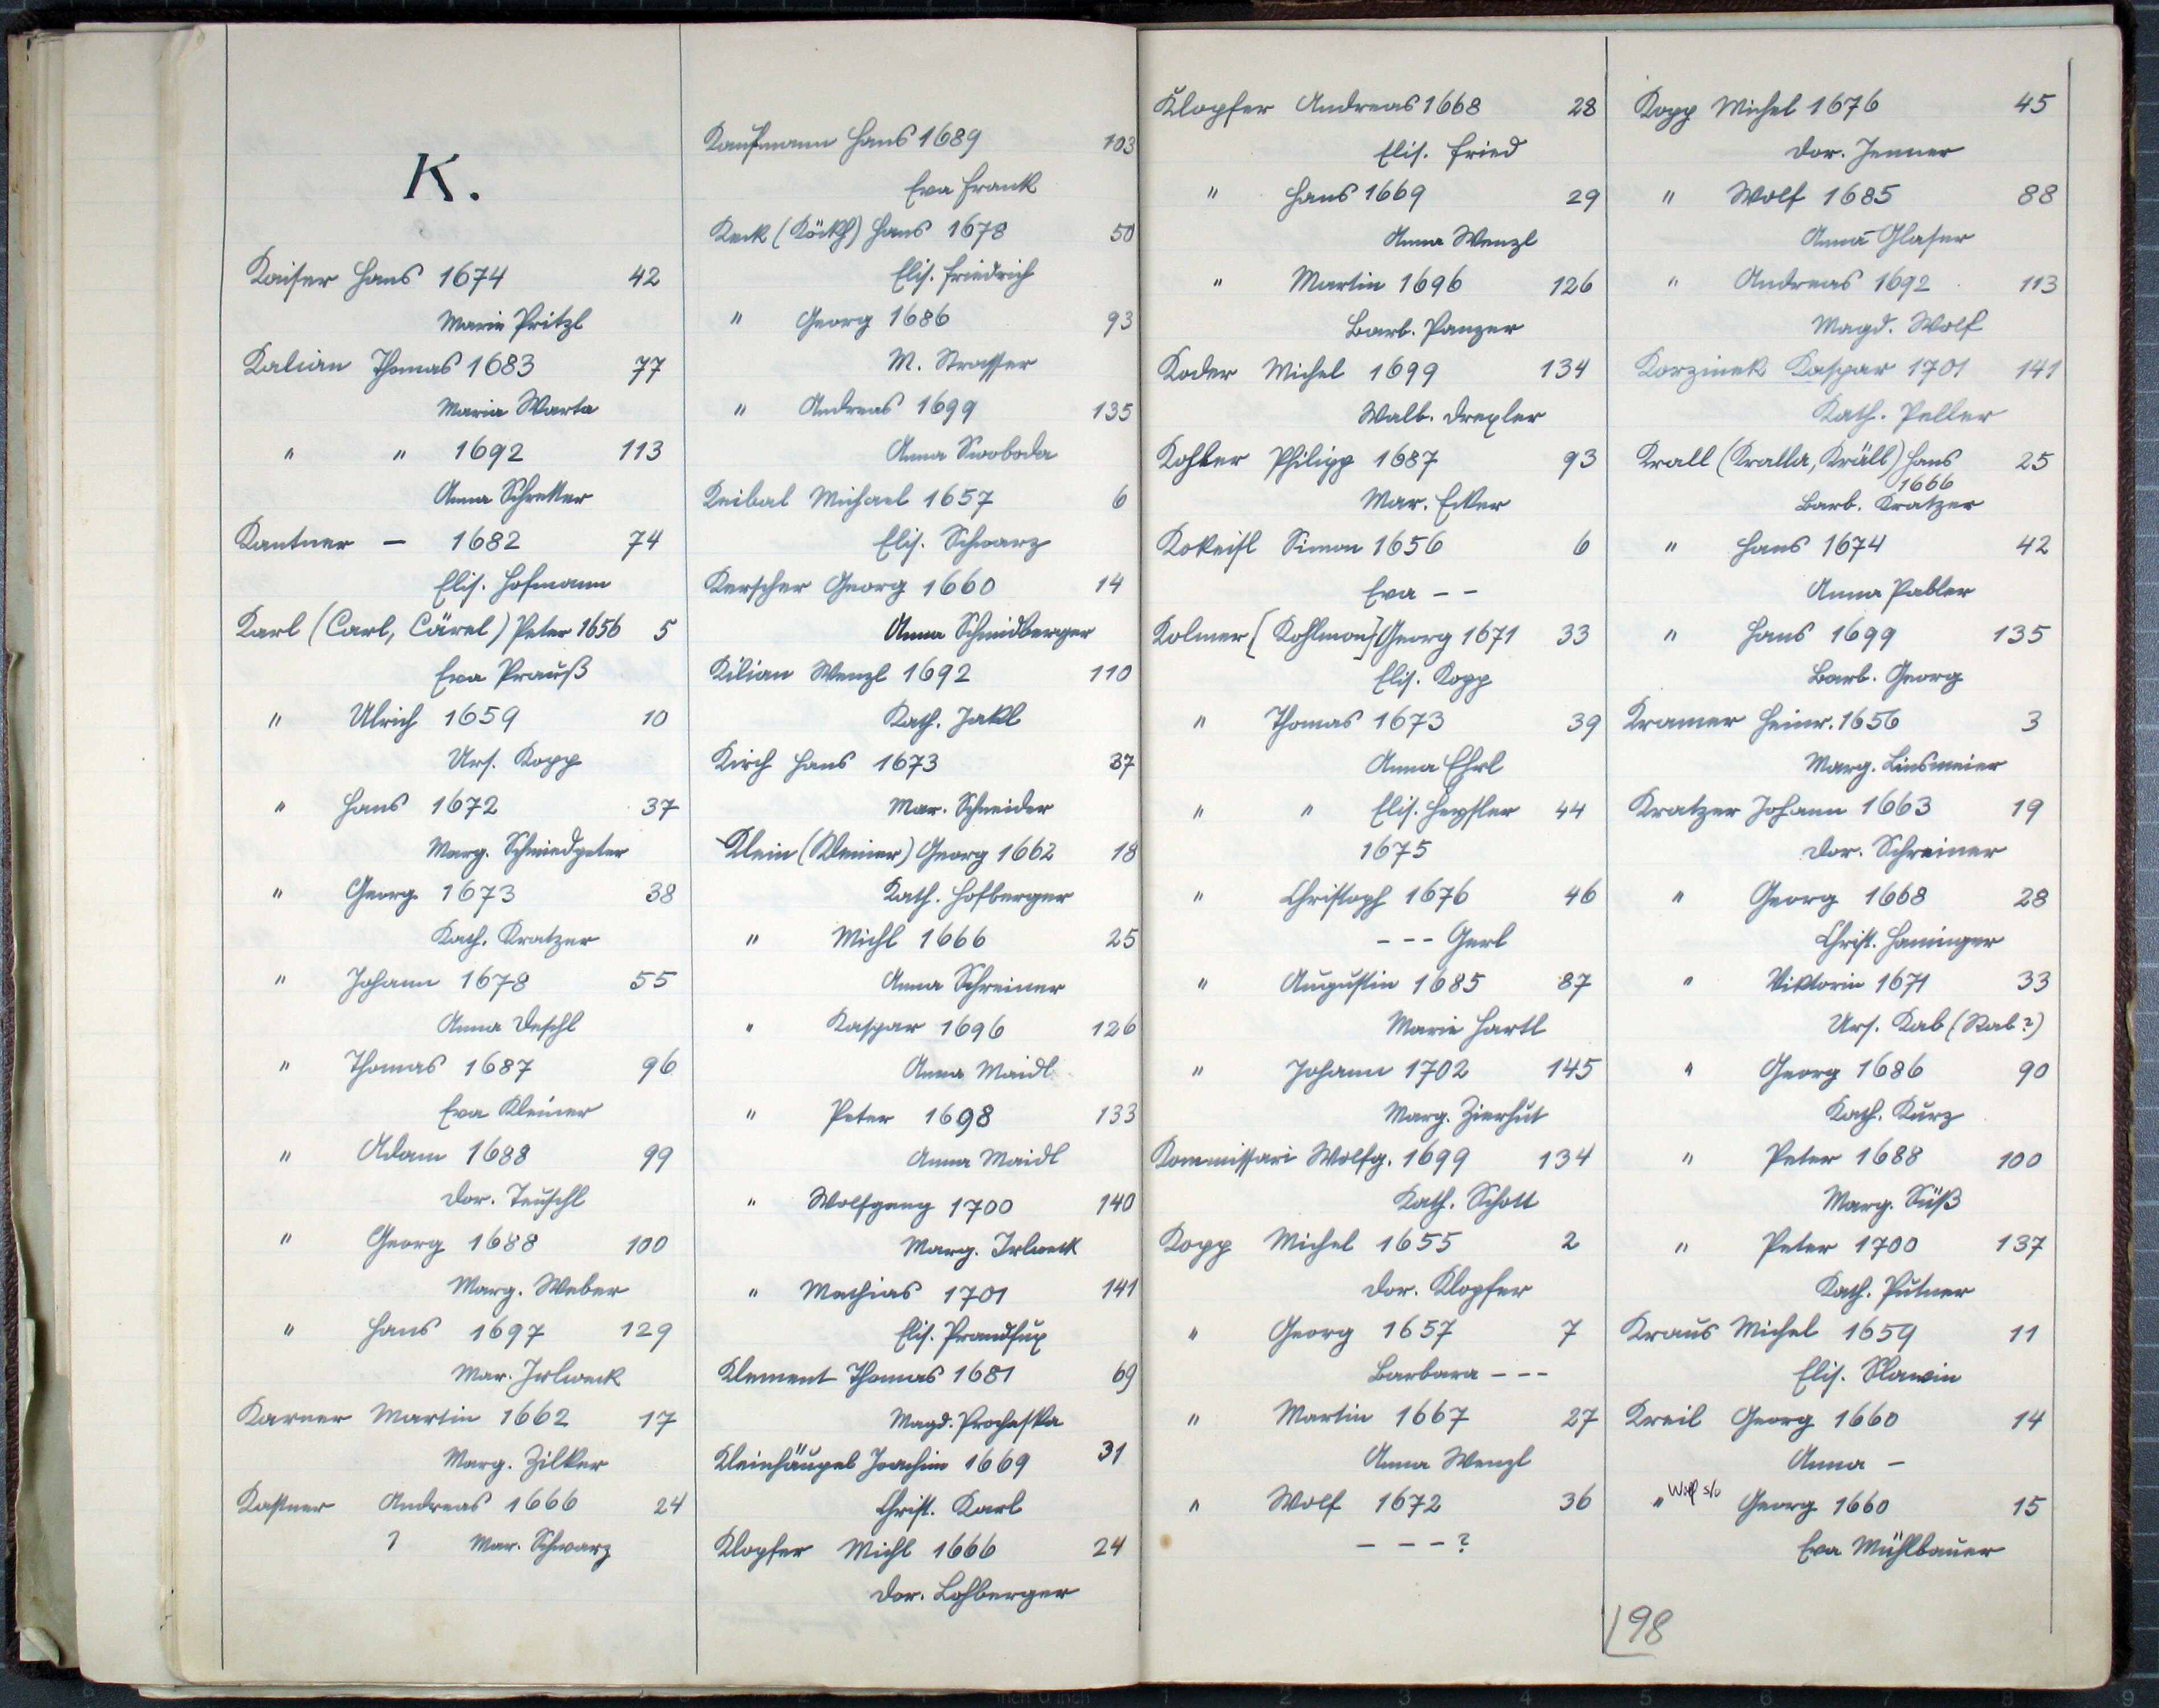 K.
Kaiser Hans 1674 42
Marie Pritzl
Kalian Thomas 1683 77
Maria Warta
" " 1692 113
Anna Schretter
Kantner — 1682 74
Elis. Hofmann
Karl (Carl, Cärel) Peter 1656 5
Eva Prauß
" Ulrich 1659 10
Urs. Kopp
" Hans 1672 37
Marg. Schmiedpeter
" Georg 1673 38
Kath. Kratzer
" Johann 1678 55
Anna Deschl
" Thomas 1687 96
Eva Kleiner
" Adam 1688 99
Dor. Teuschl
" Georg 1688 100
Marg. Weber
" Hans 1697 129
Mar. Irlweck
Karner Martin 1662 17
Marg. Zilker
Kastner Andreas 1666 24
? Mar. Schwarz
Kaufmann Hans 1689 103
Eva Frank
Keck (Köckh) Hans 1678 50
Elis. Friedrich
" Georg 1686 93
M. Strasser
" Andreas 1699 135
Anna Swoboda
Keibal Michael 1657 6
Elis. Schwarz
Kerscher Georg 1660 14
Anna Schmidberger
Kilian Wenzl 1692 110
Kath. Jakl
Kirch Hans 1673 37
Mar. Schneider
Klein (Kleiner) Georg 1662 18
Kath. Hofberger
" Michl 1666 25
Anna Schreiner
" Kaspar 1696 126
Anna Maidl
" Peter 1698 133
Anna Maidl
" Wolfgang 1700 140
Marg. Irlweck
" Mathias 1701 141
Elis. Prandsux
Klement Thomas 1681 69
Magd. Prochaska
Kleinhäupel Joachim 1669 31
Christ. Karl
Klopfer Michl 1666 24
Dor. Lohberger
Klopfer Andreas 1668 28
Elis. Fried
" Hans 1669 29
Anna Wenzl
" Martin 1696 126
Barb. Panzer
Koder Michel 1699 134
Walb. Drexler
Kohler Philipp 1687 93
Mar. Ecker
Kokeisl Simon 1656 6
Eva – –
Kolmer [Kohlmon] Georg 1671 33
Elis. Kopp
" Thomas 1673 39
Anna Ehrl
" " Elis. Heysler 44
1675
" Christoph 1676 46
– – – Gerl
" Augustin 1685 87
Marie Hartl
" Johann 1702 145
Marg. Zierhut
Kommissari Wolfg. 1699 134
Kath. Schott
Kopp Michel 1655 2
Dor. Klopfer
" Georg 1657 7
Barbara – – –
" Martin 1667 27
Anna Wenzl
" Wolf 1672 36
– – – ?
Kopp Michel 1676 45
Dor. Jenner
" Wolf 1685 88
Anna Glaser
" Andreas 1692 113
Magd. Wolf
Korzinek Kaspar 1701 141
Kath. Peller
Krall (Kralla, Kräll) Hans 25
1666
Barb. Kratzer
" Hans 1674 42
Anna Pabler
" Hans 1699 135
Barb. Georg
Kramer Heinr. 1656 3
Marg. Linsmeier
Kratzer Johann 1663 19
Dor. Schreiner
" Georg 1668 28
Christ. Haminger
" Viktorin 1671 33
Urs. Kab (Rab?)
" Georg 1686 90
Kath. Kurz
" Peter 1688 100
Marg. Süß
" Peter 1700 137
Kath. Putner
Kraus Michel 1659 11
Elis. Slawin
Kreil Georg 1660 14
Anna –
" Wolf s/o Georg 1660 15
Eva Mühlbauer
98